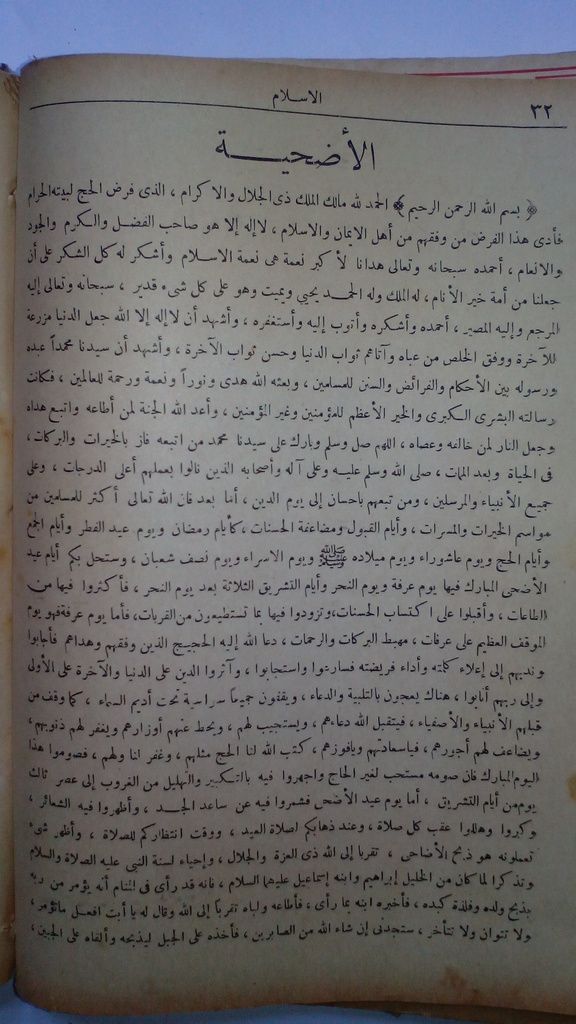 ٣٢
الاسلام
الأضحية
﴿ بسم الله الرحمن الرحيم ﴾ الحمد لله مالك الملك ذى الجلال والاكرام ، الذى فرض الحج لبيته الحرام
فأدى هذا الفرض من وفقهم من أهل الايمان والاسلام ، لا إله إلا هو صاحب الفضل والكرم والجود
والانعام ، أحمده سبحانه وتعالى هدانا لأكبر نعمة هى نعمة الاسلام وأشكر له كل الشكر على أن
جعلنا من أمة خير الأنام ، له الملك وله الحمد يحيي ويميت وهو على كل شىء قدير ، سبحانه وتعالى إليه
المرجع وإليه المصير ، أحمده وأشكره وأتوب إليه وأستغفره ، وأشهد أن لا إله إلا الله جعل الدنيا مزرعة
للآخرة ووفق الخلص من عباه وآتاهم ثواب الدنيا وحسن ثواب الآخرة ، وأشهد أن سيدنا محمداً عبده
ورسوله بين الأحكام والفرائض والسنن للمسلمين ، وبعثه الله هدى ونوراً ونعمة ورحمة للعالمين ، فكانت
رسالته البشرى الكبرى والخير الأعظم للمؤمنين وغير المؤمنين ، وأعد الله الجنة لمن أطاعه واتبع هداه
وجعل النار لمن خالفه وعصاه ، اللهم صل وسلم وبارك على سيدنا محمد من اتبعه فاز بالخيرات والبركات ،
فى الحياة وبعد المات ، صلى الله وسلم عليه وعلى آله وأصحابه الذين نالوا بعملهم أعلى الدرجات ، وعلى
جميع الأنبياء والمرسلين ، ومن تبعهم باحسان إلى يوم الدين ، أما بعد فان الله تعالى أكثر للمسلمين من
مواسم الخيرات والمسرات ، وأيام القبول ومضاعفة الحسنات ، كأيام رمضان ويوم عيد الفطر وأيام الجمع
وأيام الحج ويوم عاشوراء ويوم ميلاده ﷺ ويوم الاسراء ويوم نصف شعبان ، وستحل بكم أيام عيد
الأضحى المبارك فيها يوم عرفة ويوم النحر وأيام التشريق الثلاثة بعد يوم النحر ، فأكثروا فيها من
الطاعات ، وأقبلوا على اكتساب الحسنات ، وتزودوا فيها بما تستطيعون من القربات ، فأما يوم عرفة فهو يوم
الموقف العظيم على عرفات ، مهبط البركات والرحمات ، دعا الله إليه الحجيج الذين وفقهم وهداهم فأجابوا
ونديهم إلى إعلاء كلمته وأداء فريضته فسارعوا واستجابوا ، وآثروا الدين على الدنيا والآخرة على الأولى
وإلى ربهم أنابوا ، هناك يعجون بالتلبية والدعاء ، ويقفون جميعاً سواسية تحت أديم السماء ، كما وقف من
قبلهم الأنبياء والأصفياء ، فيتقبل الله دعاءهم ، ويستجيب لهم ، ويحط عنهم أوزارهم ويغفر لهم ذنوبهم ،
ويضاعف لهم أجورهم ، فياسعادتهم ويافوزهم ، كتب الله لنا الحج مثلهم ، وغفر لنا ولهم ، فصوموا هذا
اليوم المبارك فان صومه مستحب لغير الحاج واجهروا فيه بالتكبير والتهليل من الغروب إلى عصر ثالث
يوم من أيام التشريق ، أما يوم عيد الأضحى فشمروا فيه عن ساعد الجد ، وأظهروا فيه الشعائر ،
وكبروا وهللوا عقب كل صلاة ، وعند ذهابكم لصلاة العيد ، ووقت انتظاركم للصلاة ، وأظهر شىء
تعملونه هو ذبح الأضاحى ، تقربا إلى الله ذى العزة والجلال ، وإحياء لسنة النبى عليه الصلاة والسلام
وتذكرا لما كان من الخليل إبراهيم وابنه إسماعيل عليهما السلام ، فانه قد رأى فى المنام أنه يؤمر من ربه
بذبح ولده وفلذة كبده ، فأخبره ابنه بما رأى ، فأطاعه ولباه تقرباً إلى الله وقال له يا أبت افعل ماتؤمر ،
ولا تتوان ولا تتأخر ، ستجدنى إن شاء الله من الصابرين ، فأخذه على الجبل ليذبحه وألقاه على الجبين ،